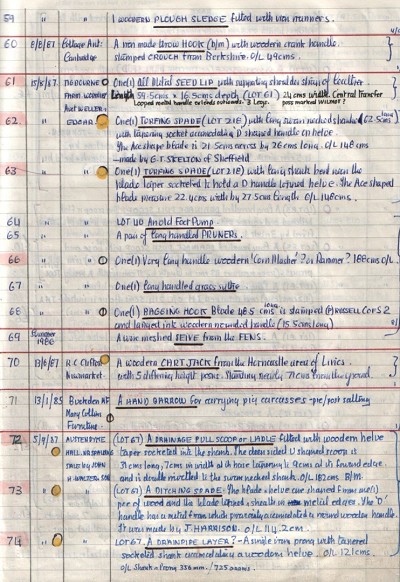 59 " " 1 WOODERN PLOUGH SLEDGE fitted with iron runners.
60 8/8/87 Cottage Ant: A iron made THROW HOOK (b/m) with wooden crank handle.
Cambridge stamped CROUCH from Berkshire. O/L 49cms.
61 15/8/87 One(1) Old Metal SEED LIP with supporting shoulder strap of leather.
Length 59.5cms x 16.5cms depth, (LOT 61) 24 cms width. Central transfer
Looped metal handle extends outwards. 3 legs. poss marked WILMOT?
62 EDGAR One(1) TURFING SPADE (LOT 21E) with long swan necked shank (62.5cms long)
with tapering socket accomodating D shaped handle on helve.
The Ace shape blade is 21.5cms across by 26cms long. O/L 148cms
— made by G.T. SKELTON of Sheffield
63 " " One(1) TURFING SPADE (LOT 21B) with long shank bend when the
blade taper socketed to hold a D handle formed helve. The Ace shaped
blade measure 22.4cms width by 27.5cms length. O/L 148cms.
64 " " LOT 40 An old Foot Pump.
65 " " A pair of long handled PRUNERS.
66 " " One(1) Very long handle woodern 'Corn Masher'? or Rammer? 188cms O/L.
67 " " One(1) long handled grass
68 " " One(1) BAGGING HOOK Blade 48.5cms long is stamped (?) RUSSELL COPS 2
and tanged into wooden rounded handle (15.5cms long)
69 Summer 1986 A wire meshed SEIVE from the FENS.
70 13/6/87 R.C Clifton A wooden CART JACK from the Horncastle area of Lincs.
Newmarket with 5 different height posns. Standing nearly 71cms from the ground.
71 13/1/85 Buckden A HAND BARROW for carrying pig carcasses - pre/post salting
Mary Collins
Furniture.
72 5/9/87 AUSTENDYKE (LOT 67) A DRAINAGE PULL SCOOP or LADLE fitted with woodern helve
HALL. NR SPALDING taper socketed into the shank. The open sided U shaped scoop is
SALE by JOHN 31cms long, 7cms in width at the base tapering to 9cms at its forward edge.
H. WALTERS SON and is double rivetted to the swan necked shank. O/L 182cms B/M.
73 " " (LOT 67) A DITCHING SPADE. The blade + helve are shaped from one(1)
piece of wood and the blade formed a sheath in metal edge. The 'D'
handle has a rivet from which previously accomodated a round wooden handle.
It was made by J. HARRISON. O/L 114.2cm.
74 " " LOT 67. A DRAINPIPE LAYER? - A single iron prong with tapered
socketed shank accomodating a woodern helve. O/L 121cms.
O/L Shank + Prong 336mm. / 725 prongs.